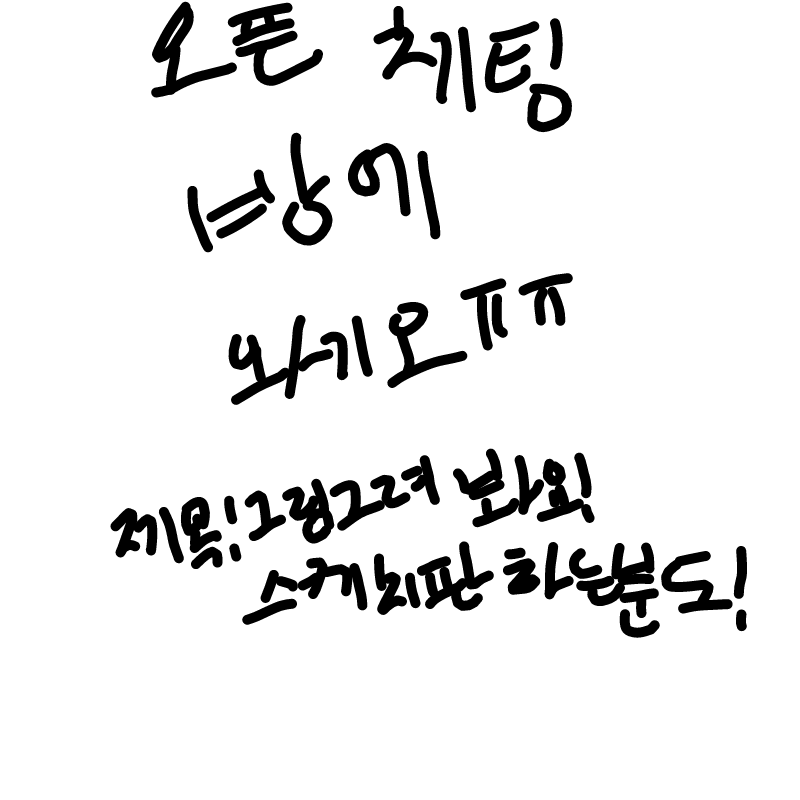 오픈 채팅
방에
와기오ㅠㅠ
제목!그링그려 봐요!
스케치판 하는분도!